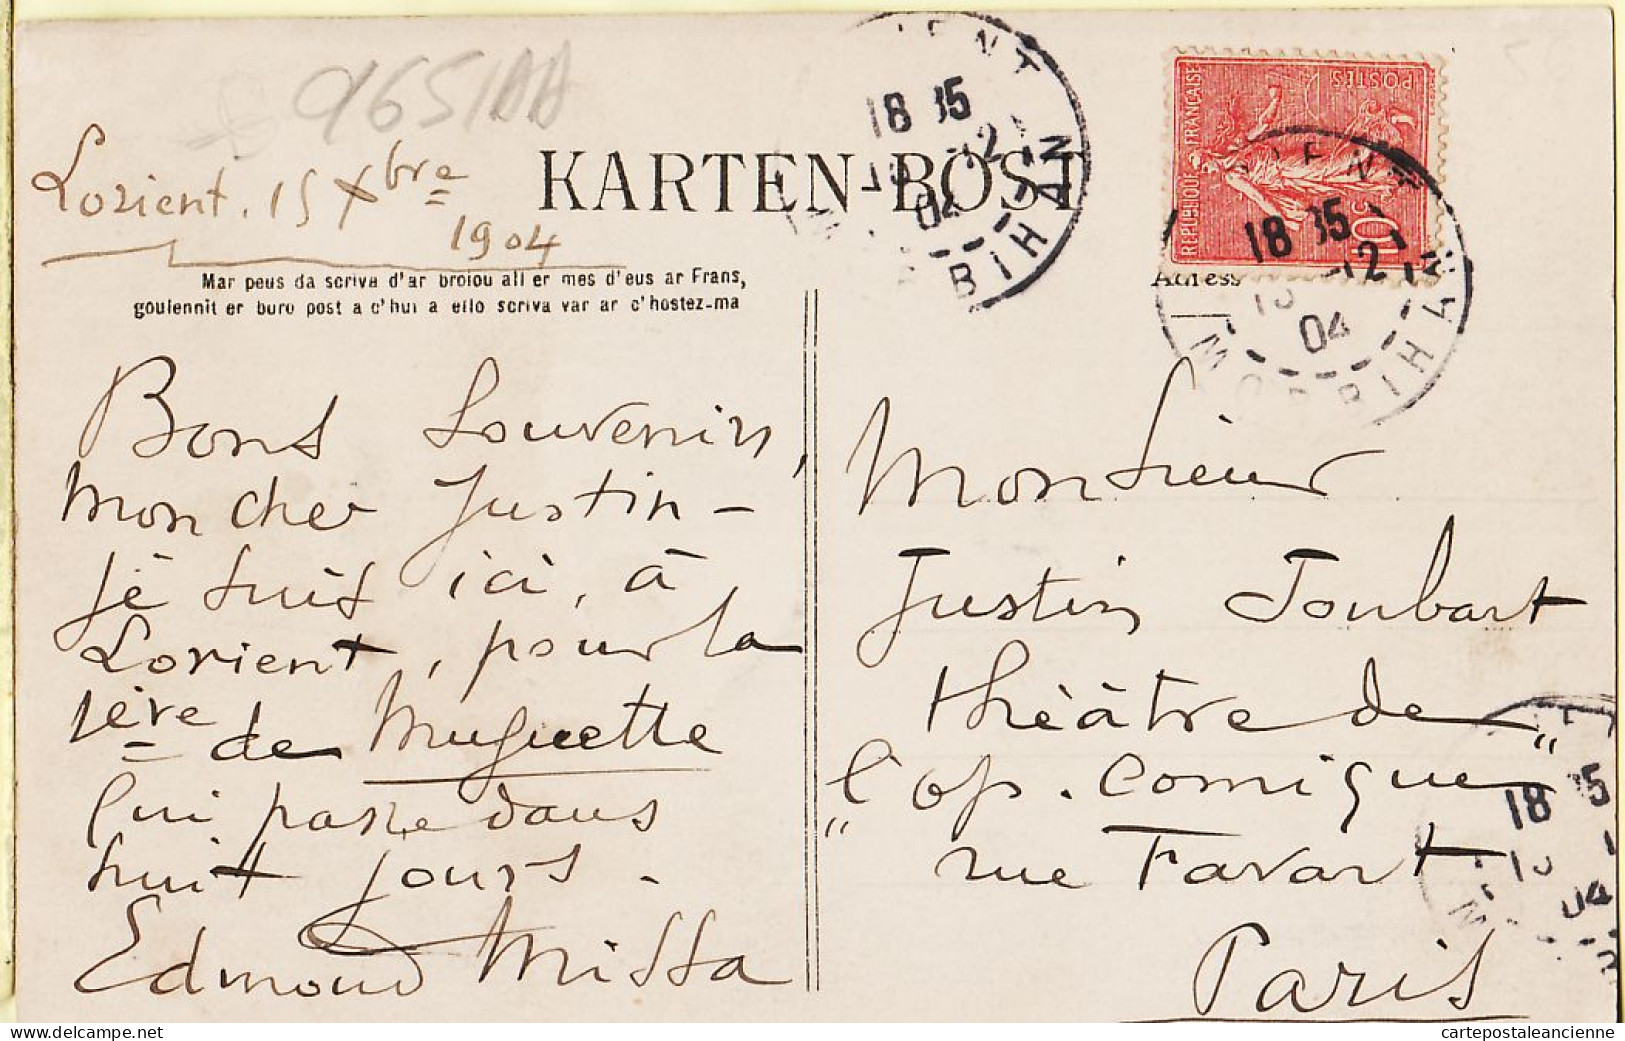 9651AA
Lorient, 15 Xbre
1904
KARTEN-POST
Mar peus da scriva d'ar broiou all er mes d'eus ar Frans,
goulennit er buro post a c'hui a ello scriva var ar c'hostez-ma
Adress
REPUBLIQUE FRANÇAISE
POSTES
10c
18 35
15 -12
04
MORBIHAN
18 35
15 -12
04
MORBIHAN
Bons Souvenirs,
mon cher Justin -
je suis ici, à
Lorient, pour la
1ère de Muguette
qui passe dans
huit jours.
Edmond Missa
Monsieur
Justin Joubart
théâtre de
"l'op. Comique"
rue Favart
Paris
18 35
15
04
cartepostaleancienne